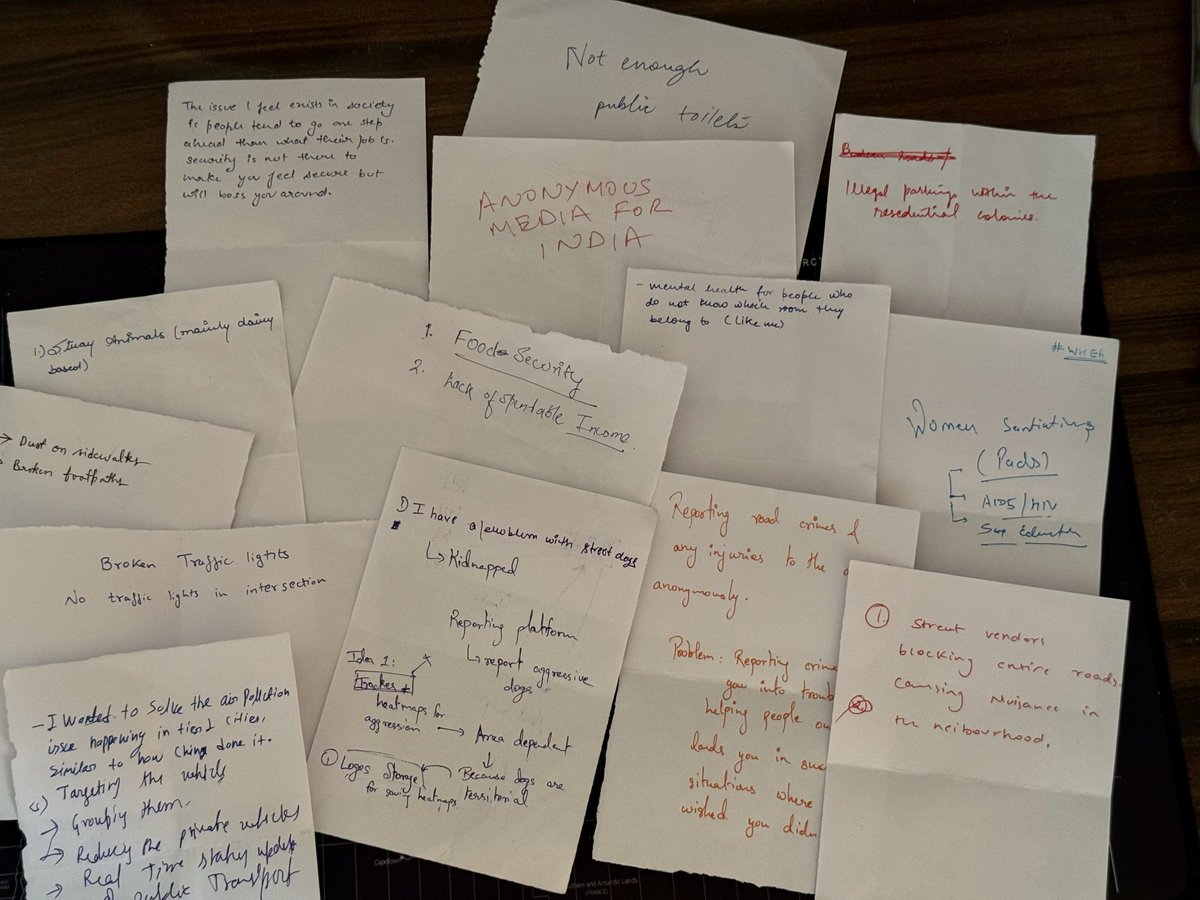 Not enough
public toilets
The issue I feel exists in society
is people tend to go one step
ahead than what their job is.
security is not there to
make you feel secure but
will boss you around.
ANONYMOUS
MEDIA FOR
INDIA
Broken Roads
Illegal parkings within the
resedential colonies.
- mental health for people who
do not know which room they
belong to (like me)
1.) Stray Animals (mainly dairy
based)
1. Food Security
2. Lack of spendable Income.
Women
(Pads)
AIDS/HIV
Sex Education
→ Dust on sidewalks
→ Broken footpaths
Broken Traffic lights
No traffic lights in intersection
1) I have a problem with street dogs
↳ Kidnapped
Reporting platform
↳ report aggressive
dogs
Idea 1:
Tracker
heatmaps for
aggression → Area dependent
Because dogs are
territorial
① Logos Storage
for saving heatmaps
Reporting road crimes &
any injuries to the
anonymously.
Problem: Reporting crime
you into
helping people
lands you in
situations where
wished you
1. Street vendors
blocking entire roads.
causing Nuisance in
the neibourhood.
- I wanted to solve the air pollution
issue happening in tier 1 cities,
similar to how China done it.
Targeting the vehicls
→ Grouping them.
→ Reducing the private vehicles
→ Real time status update
public Transport
Capetown
ern and Antarctic Lands
(FRANCE)